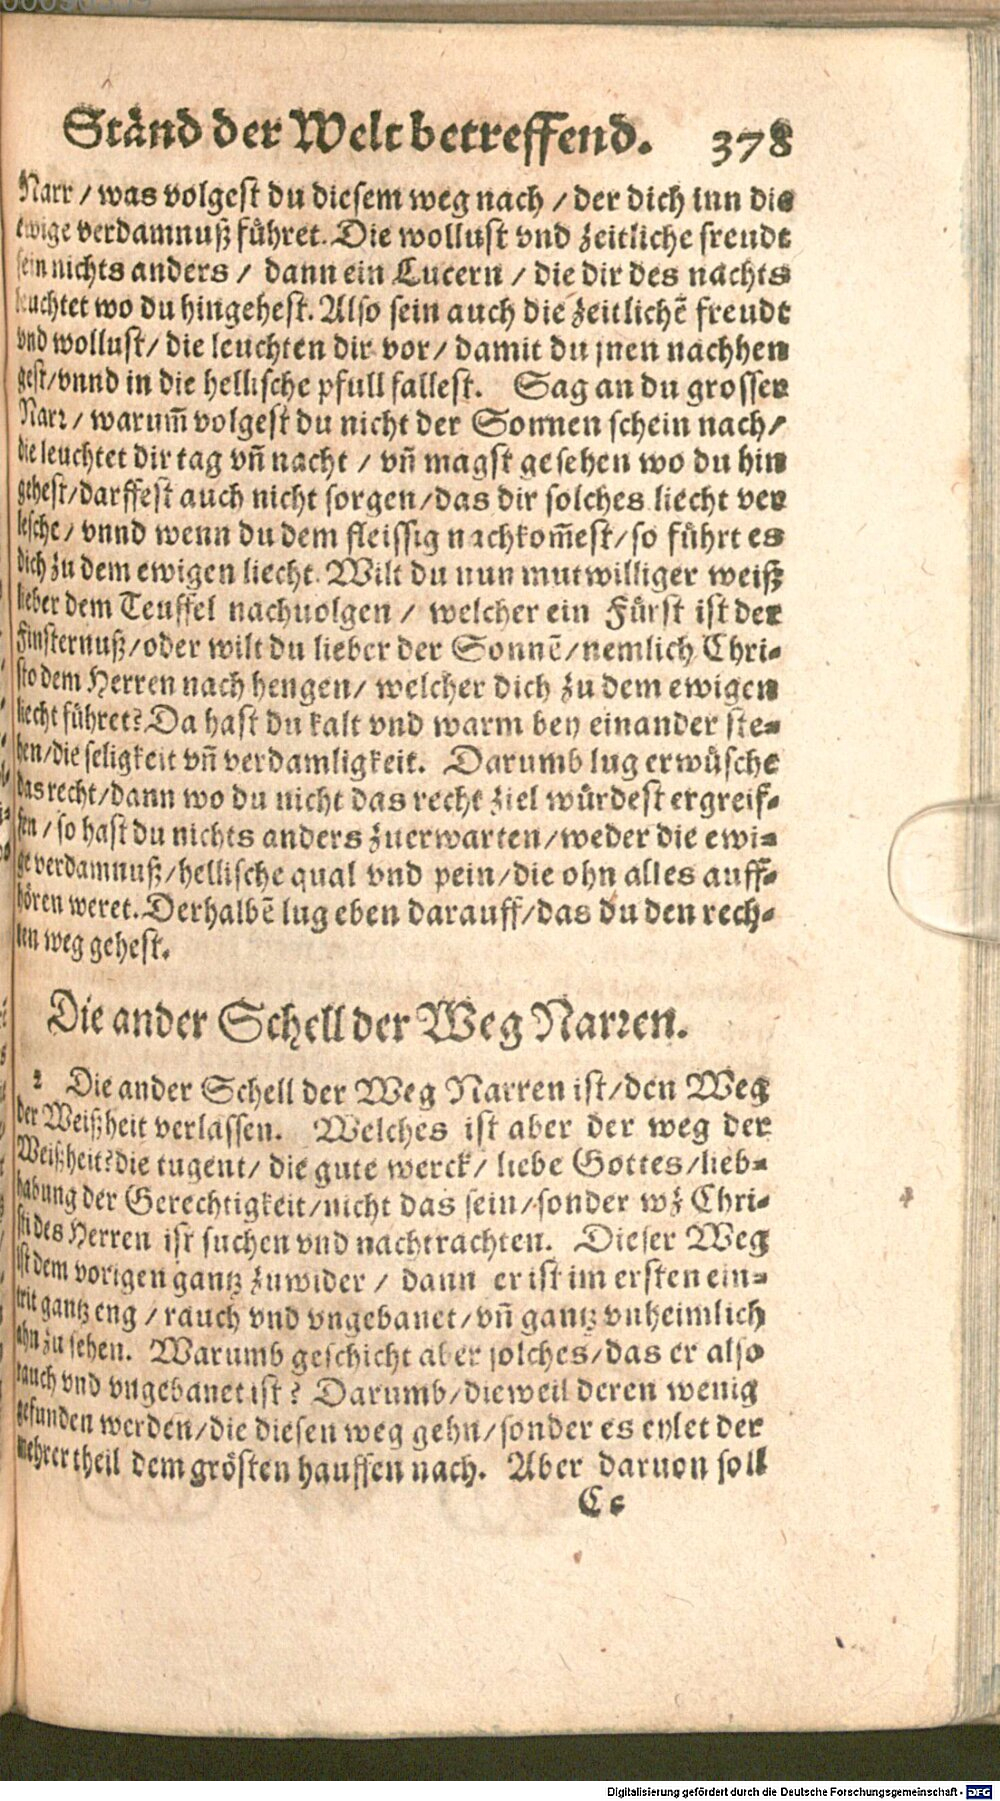 Ständ der Welt betreffend. 378
Narr / was volgest du diesem weg nach / der dich inn die
ewige verdamnuß führet. Die wollust vnd zeitliche freudt
sein nichts anders / dann ein Lucern / die dir des nachts
leuchtet wo du hingehest. Also sein auch die zeitlichē freudt
vnd wollust / die leuchten dir vor / damit du jnen nachhen
gest / vnnd in die hellische pfull fallest. Sag an du grosser
Narr / warum̄ volgest du nicht der Sonnen schein nach /
die leuchtet dir tag vn̄ nacht / vn̄ magst gesehen wo du hin
gehest / darffest auch nicht sorgen / das dir solches liecht ver
lesche / vnnd wenn du dem fleissig nachkom̄est / so führt es
dich zu dem ewigen liecht. Wilt du nun mutwilliger weiß
lieber dem Teuffel nachuolgen / welcher ein Fürst ist der
Finsternuß / oder wilt du lieber der Sonnē / nemlich Chri-
sto dem Herren nach hengen / welcher dich zu dem ewigen
liecht führet? Da hast du kalt vnd warm bey einander ste-
hen / die seligkeit vn̄ verdamligkeit. Darumb lug erwüsche
das recht / dann wo du nicht das recht ziel würdest ergreif-
fen / so hast du nichts anders zuerwarten / weder die ewi-
ge verdamnuß / hellische qual vnd pein / die ohn alles auff-
hören weret. Derhalbē lug eben darauff / das du den rech-
ten weg gehest.
Die ander Schell der Weg Narren.
2 Die ander Schell der Weg Narren ist / den Weg
der Weißheit verlassen. Welches ist aber der weg der
Weißheit? die tugent / die gute werck / liebe Gottes / lieb-
habung der Gerechtigkeit / nicht das sein / sonder wz Chri-
sti des Herren ist suchen vnd nachtrachten. Dieser Weg
ist dem vorigen gantz zuwider / dann er ist im ersten ein-
trit gantz eng / rauch vnd vngebanet / vn̄ gantz vnheimlich
ahn zu sehen. Warumb geschicht aber solches / das er also
rauch vnd vngebanet ist? Darumb / dieweil deren wenig
gefunden werden / die diesen weg gehn / sonder es eylet der
mehrer theil dem grösten hauffen nach. Aber daruon soll
Cc
Digitalisierung gefördert durch die Deutsche Forschungsgemeinschaft - DFG